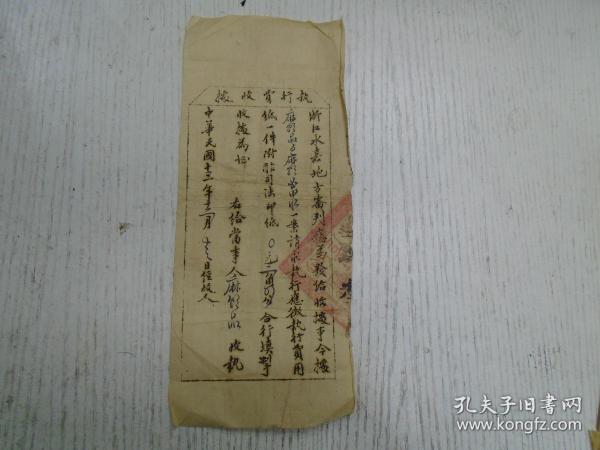 執行費收據
浙江永嘉地方審判廳為發給收據事今據
一案請求執行應徵執行費用
紙一件附貼司法印紙〇元二角 分合行填掣
收據為證
右給當事人麻 品收執
中華民國十三年十二月 日經收人
孔夫子旧书网
www.kongfz.com